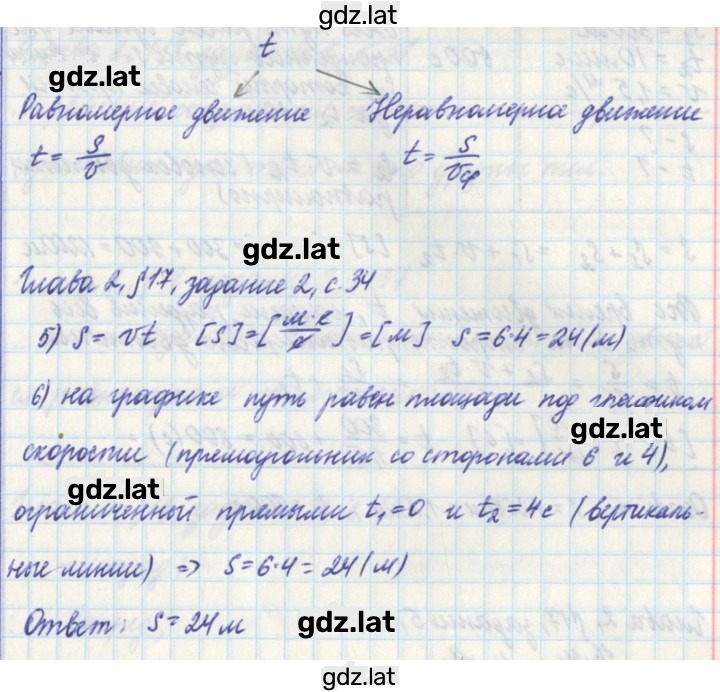 gdz.lat
t
gdz.lat
Равномерное движение Неравномерное движение
t = S/v t = S/vср
gdz.lat
Глава 2, §17, задание 2, с. 34
5) S = vt [S]=[м·с/с]=[м] S=6·4=24(м)
6) на графике путь равен площади под графиком
gdz.lat
скорости (прямоугольник со сторонами 6 и 4),
gdz.lat
ограниченной прямыми t₁=0 и t₂=4с (вертикаль-
ные линии) => S=6·4=24(м)
Ответ: S=24м gdz.lat
gdz.lat